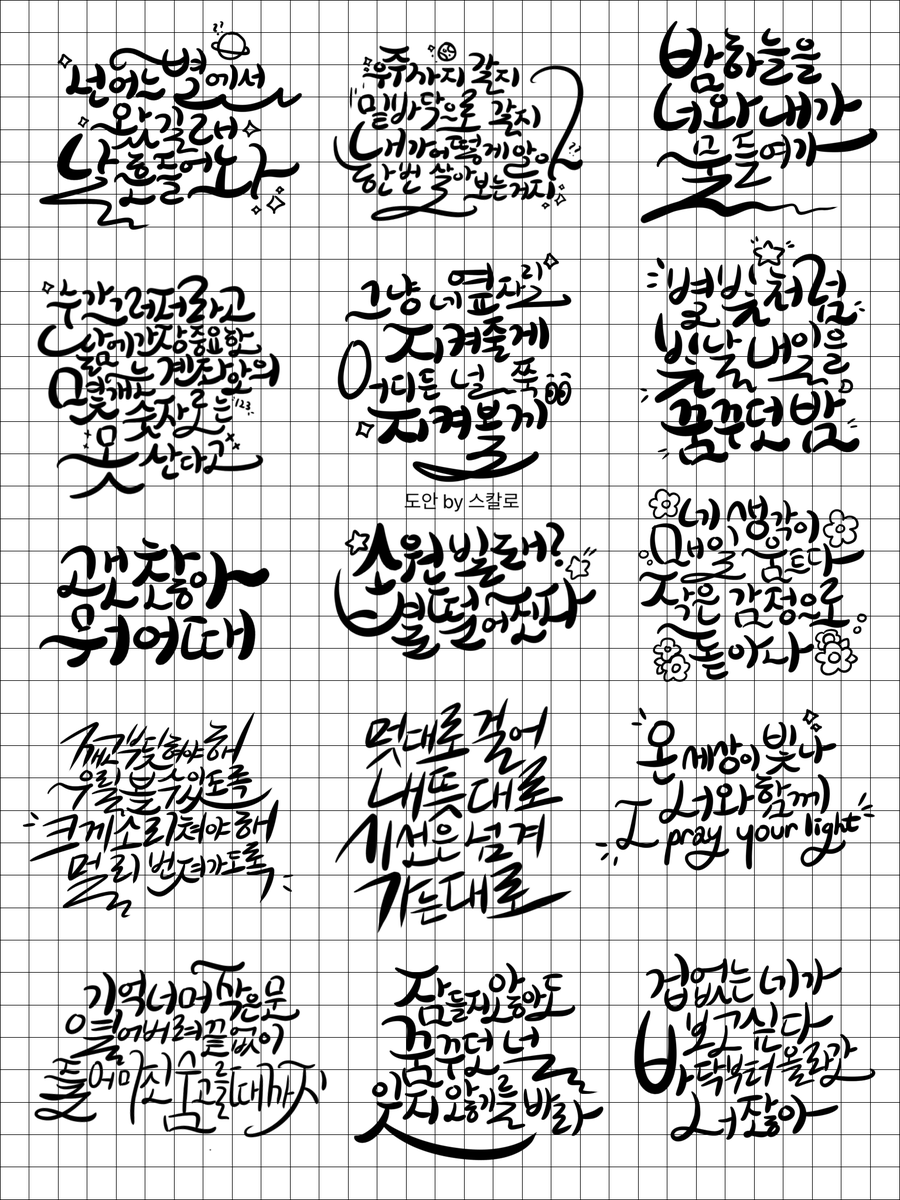 넌 어느 별에서
왔길래
날 흔들어 놔
우주까지 갈지
밑바닥으로 갈지
내가 어떻게 알아
한번 살아보는거지
밤하늘을
너와 내가
수놓을 여가
누가 그러더라고
삶에 가장 중요한
몇 개는 계좌 안의
숫자로는
123
못 산다고
그냥 네 옆자리
지켜줄게
어디든 널 쭉
지켜볼게
별빛처럼
빛날 내일을
꿈꾸던 밤
도안 by 스칼로
괜찮아
뭐 어때
소원 빌래?
별 떨어진다
네 생각이
매일 움트다
작은 감정으로
돋아나
깨고 부딪혀야 해
우릴 볼 수 있도록
크게 소리쳐야 해
멀리 번져가도록
멋대로 걸어
내 뜻대로
시선은 넘겨
가는대로
온 세상이 빛나
너와 함께
I pray your light
기억 너머 작은 문
을 열어버려 끝없이
들어마신 숨 고를 때까지
잠들지 않아도
꿈꾸던 널
잊지 않기를 바라
겁없는 네가
보고싶다
바닥부터 올라간
너잖아